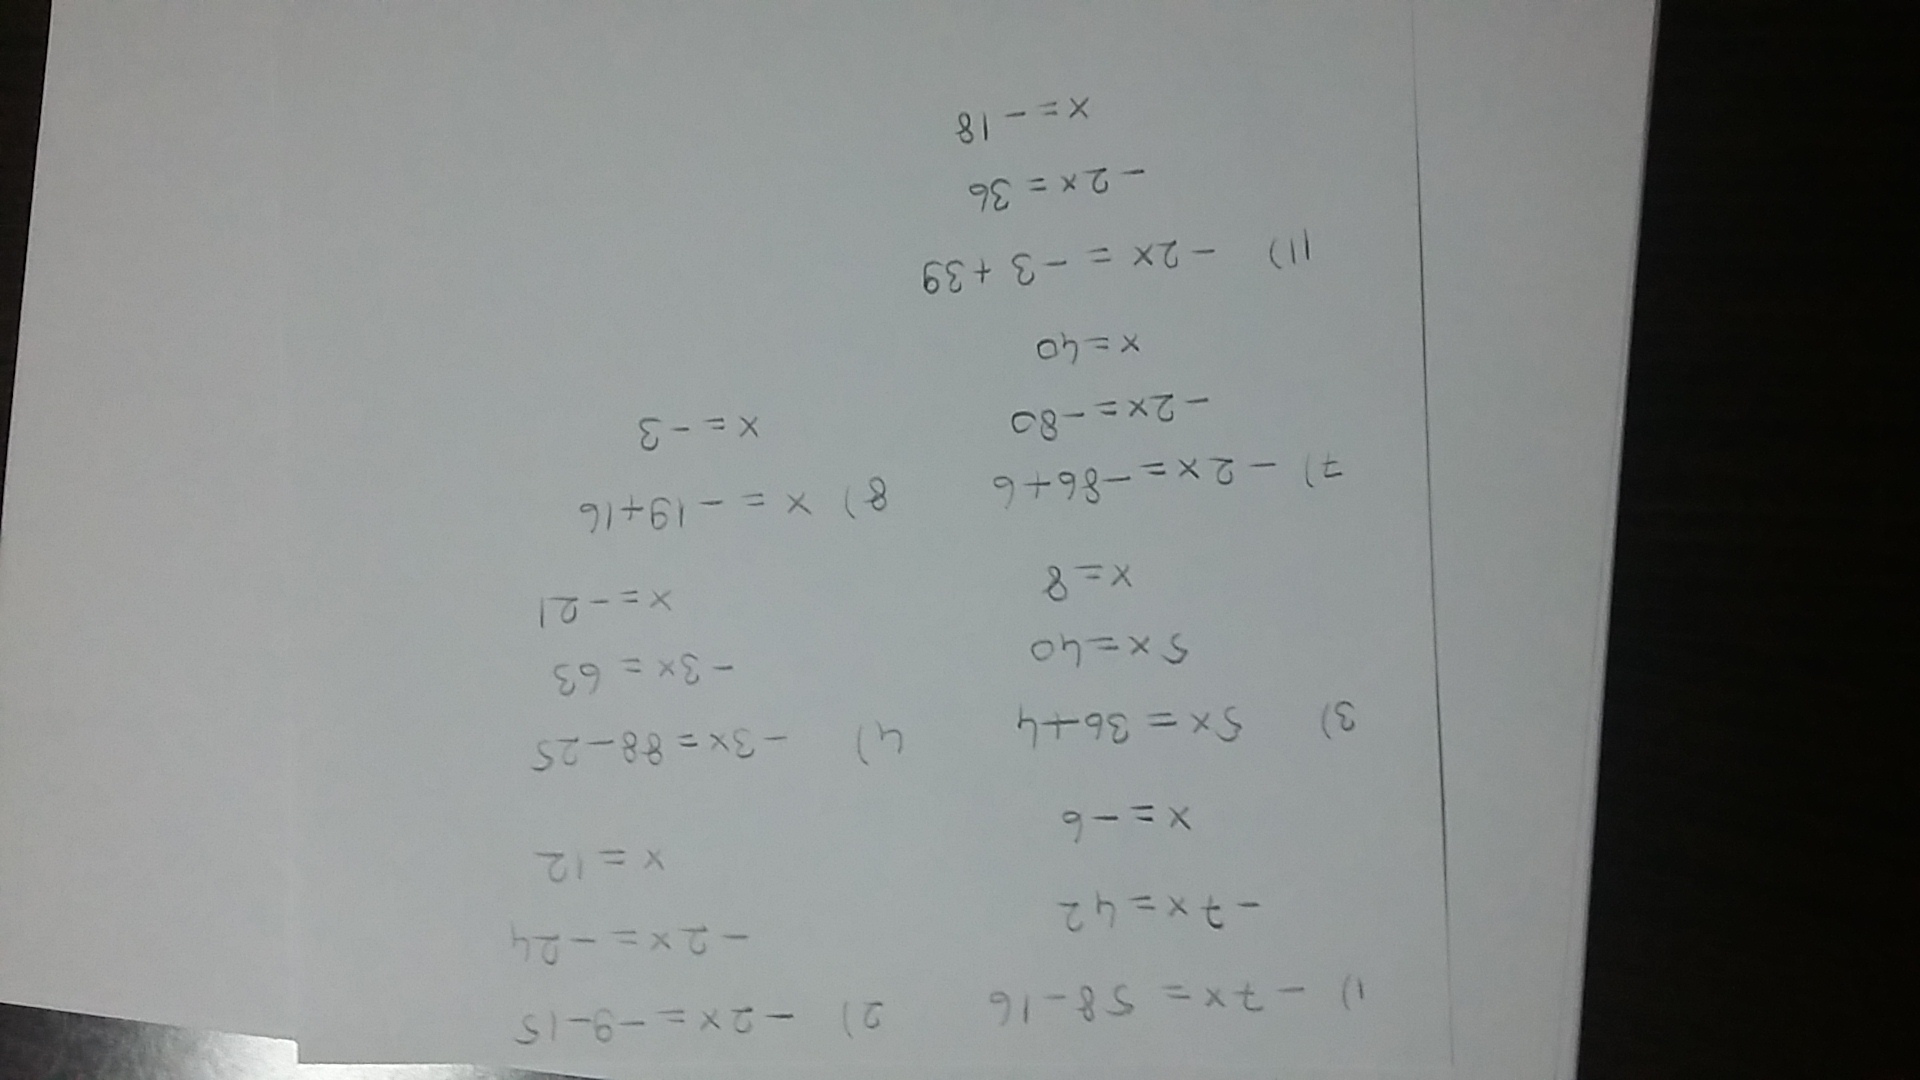 1) -7x = 58-16
-7x = 42
x = -6
2) -2x = -9-15
-2x = -24
x = 12
3) 5x = 36+4
5x = 40
x = 8
4) -3x = 88-25
-3x = 63
x = -21
7) -2x = -86+6
-2x = -80
x = 40
8) x = -19+16
x = -3
11) -2x = -3+39
-2x = 36
x = -18